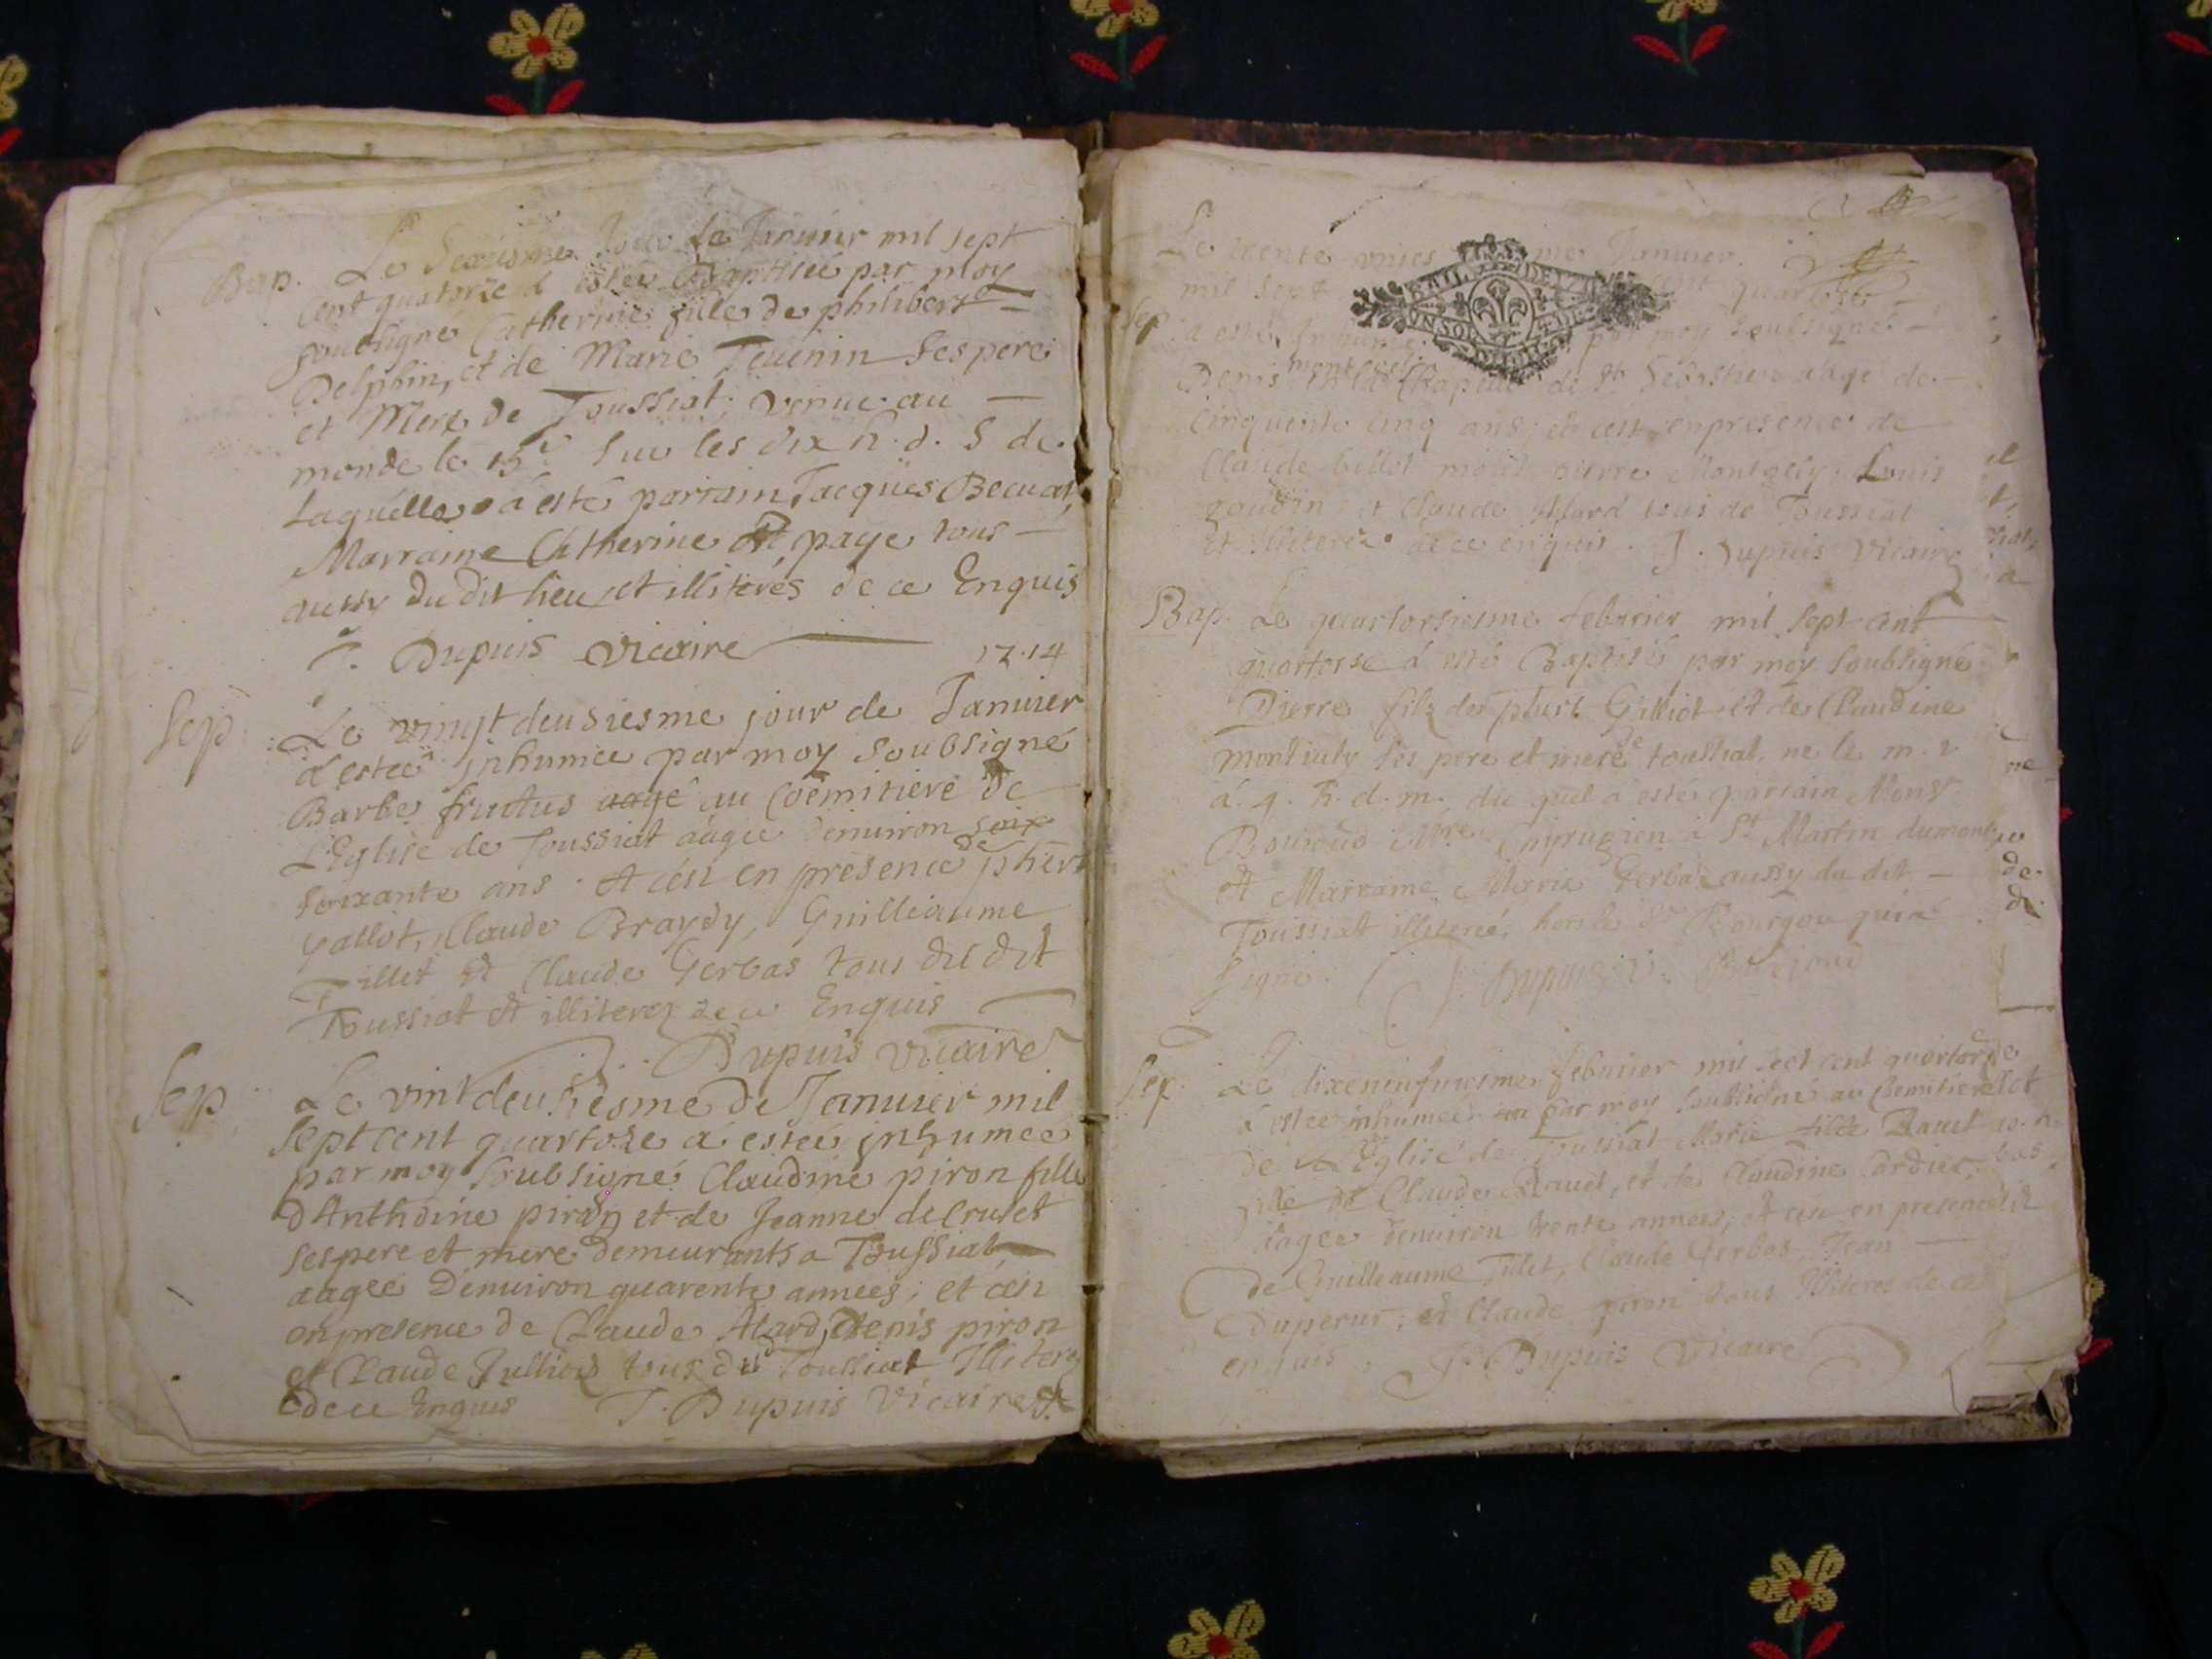 Bap. Le Seziesme Jour de Januier mil sept
Cent quatorze à estée Baptisée par moy
soubsigné Catherine fille de philibert
Delphin, et de Marie Teuenin Ses pere
et Mere de Toussiat; venue au
monde le 15e Sur les dix h. d. S de
Laquelle à esté parrain Jacques Becuat,
Marraine Catherine page tous
aussy Du dit lieu et illiterés de ce Enquis
J. Dupuis Vicaire
1714
Sep. Le vingt deusiesme jour de Januier
à estée inhumée par moy Soubsigné
Barbe fructus aagé au Coemitiere de
L'Eglise de Toussiat aagée denuiron soix
soixante ans. et cest en présence de phert
Gallot, Claude Braydy, Guilleaume
Tillet et Claude Gerbas tous du dit
Toussiat et illiterez de ce Enquis
J. Dupuis Vicaire
Sep. Le vint deuhiesme de Januier mil
sept cent quartoze a estée inhumee
par moy Soubsigné Claudine piron fille
d'Anthoine piron et de Jeanne decruset
ses pere et mere demeurants a Toussiat,
aagée Denuiron quarente années; et cest
en presence de Claude Alard, Denis piron
et Claude Jullion tous du Toussiat Illiterez
de ce Enquis J. Dupuis Vicaire
Le trente unies me Januier
mil sept cent quartorze
Sep. a esté Inhumé par moy soubsigné
Denis montegely Chapelle de St Sebastien aagé de
Cinquente cinq ans; et cest en presence de
Claude billet pierre Montgely, Louis
goudin, et Claude Alard tous de Toussiat
et illiterez de ce enquis. J. Dupuis Vicaire
Bap. Le quartorsiesme februier mil sept cent
quortorse à esté Baptisé par moy soubsigné
Pierre filz de phert Galliot et de Claudine
montialy ses pere et mere de toussiat, ne le m.
à. 4. h. d. m. du quel à esté parrain Monsr
Boujoud Mre Chyrugien à St Martin dumont
et Marraine Marie Gerbas aussy du dit
Toussiat illiterée, hors le Sr qui à
signé. J. Dupuis V. Boujoud
Sep. Le dixeneufuiesme februier mil sect cent quortorze
à estée inhumée par moy soubsigné au Cemitiere
de L'Eglise de Toussiat Marie fille Rauet
fille de Claude Rauet, et de Claudine Cordier,
aagee denuiron trente années, et cest en presence
de Guilleaume Tillet, Claude Gerbas, Jean
Duperut, et Claude piron tous Illiteres de ce
enquis, J. Dupuis Vicaire